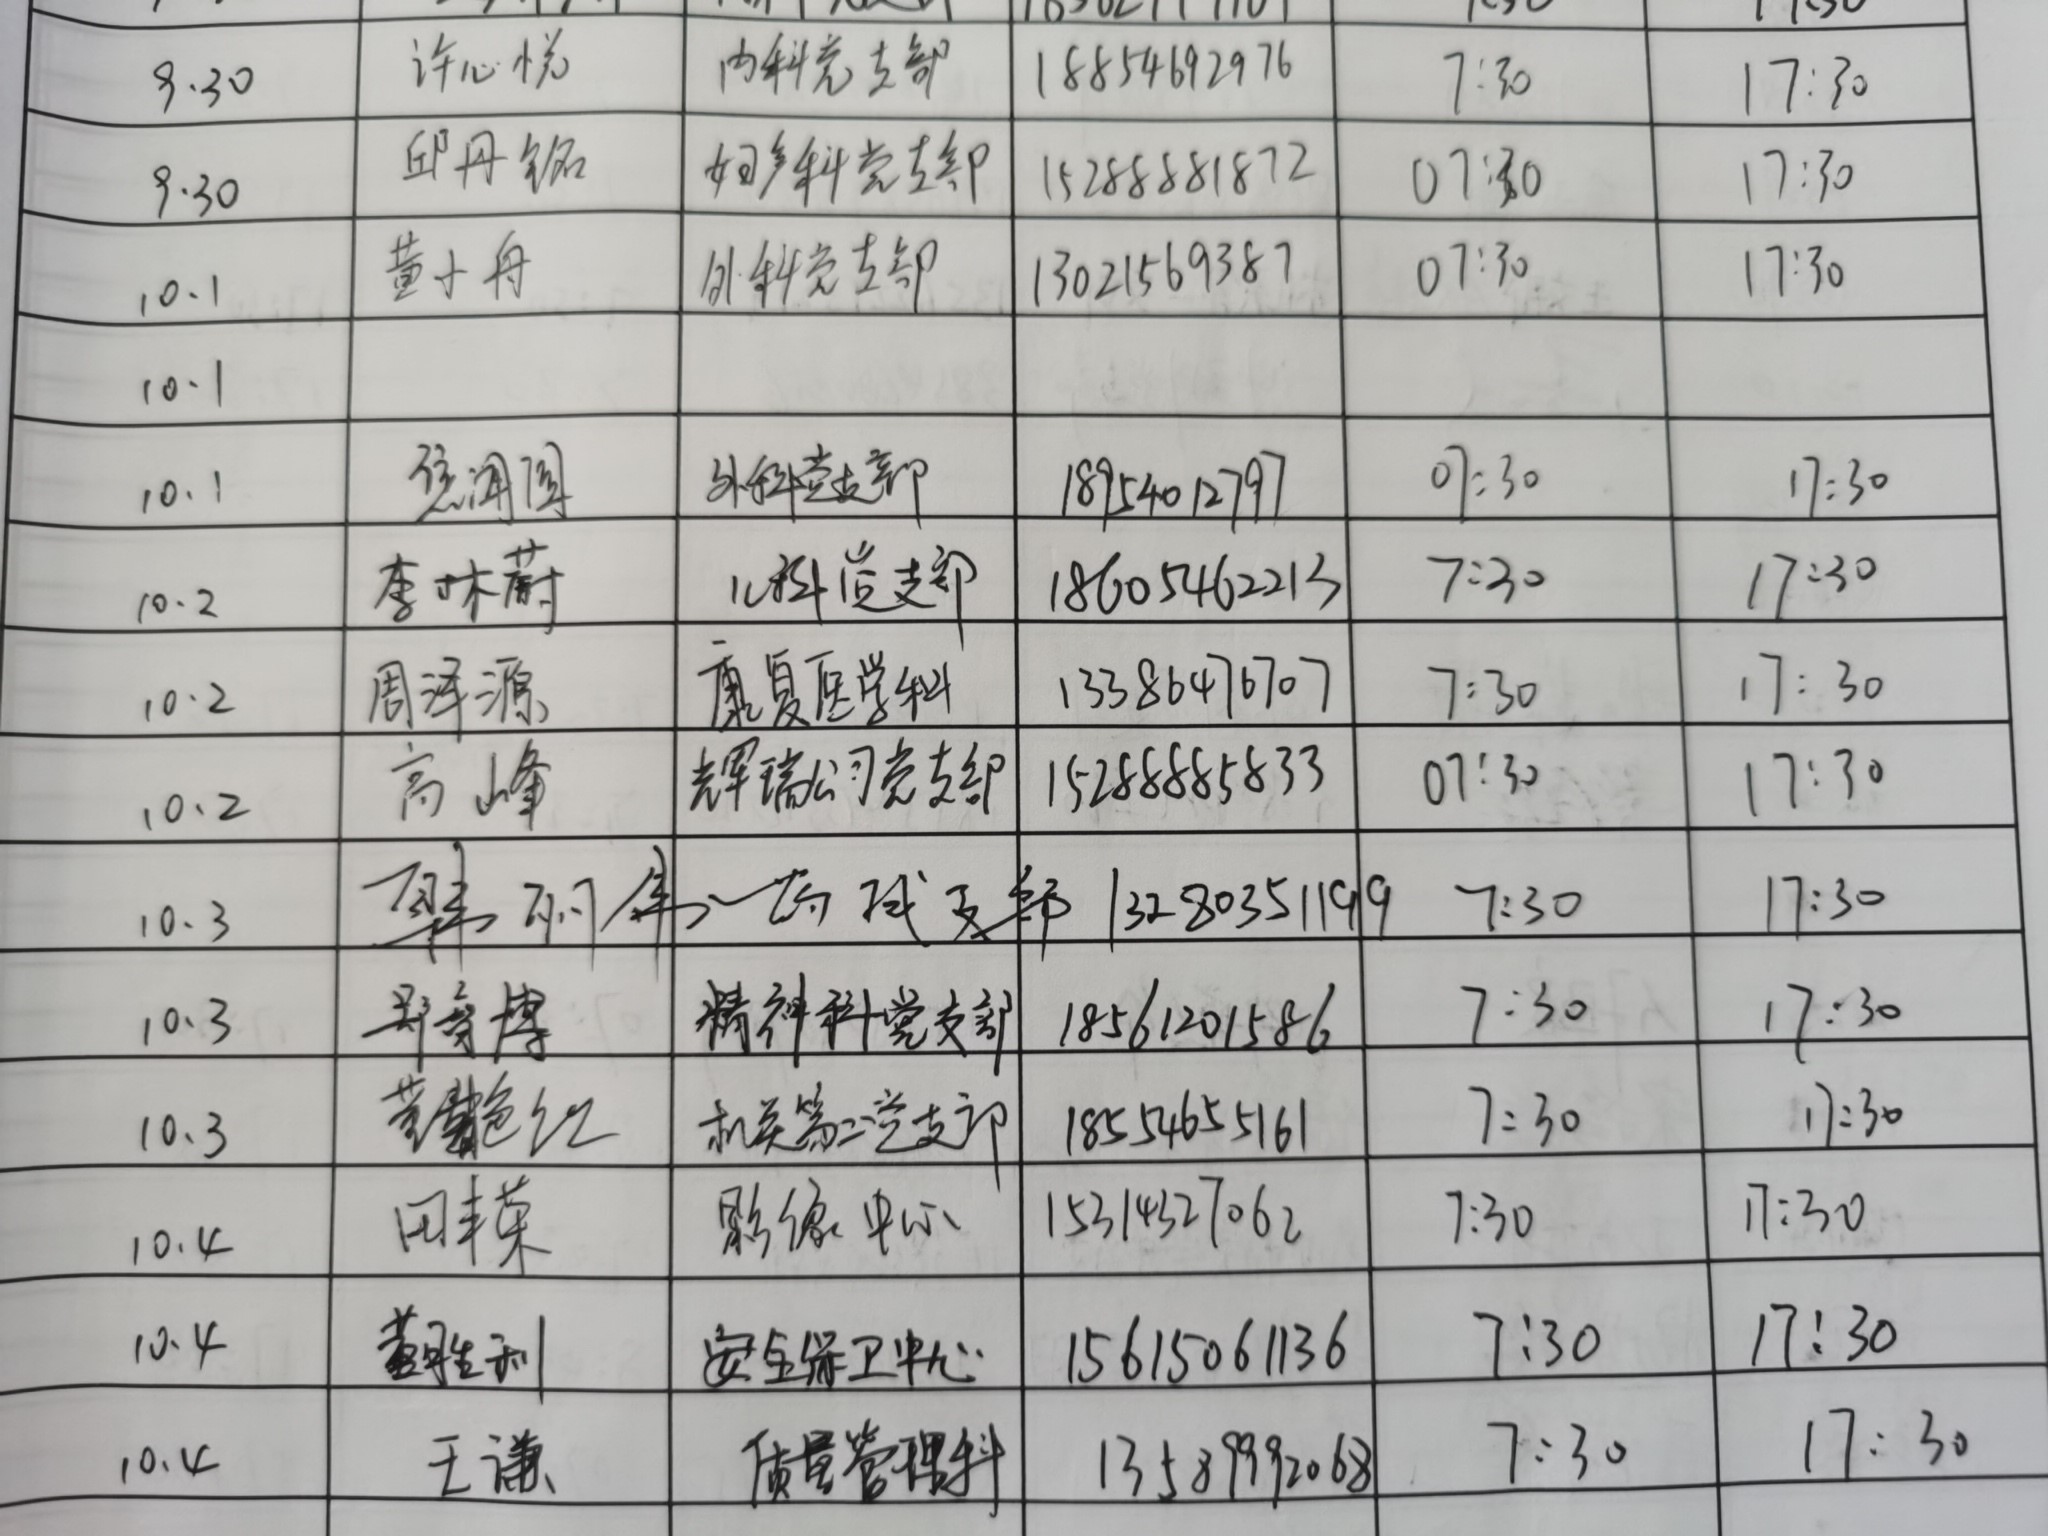 9.30 许心悦 内科党支部 18854692976 7:30 17:30
9.30 邱丹铭 妇产科党支部 15288881872 07:30 17:30
10.1 黄小舟 外科党支部 13021569387 07:30 17:30
10.1
10.1 外科党支部 18954012797 07:30 17:30
10.2 李林蔚 儿科党支部 18605462213 7:30 17:30
10.2 周泽源 康复医学科 13386476707 7:30 17:30
10.2 高峰 辉瑞公司党支部 15288885833 07:30 17:30
10.3 支部 13280351199 7:30 17:30
10.3 郑奇博 精神科党支部 18561201586 7:30 17:30
10.3 机关第二党支部 18554655161 7:30 17:30
10.4 田丰荣 影像中心 15314327062 7:30 17:30
10.4 董胜利 安全保卫中心 15615061136 7:30 17:30
10.4 王谦 质量管理科 13589992068 7:30 17:30